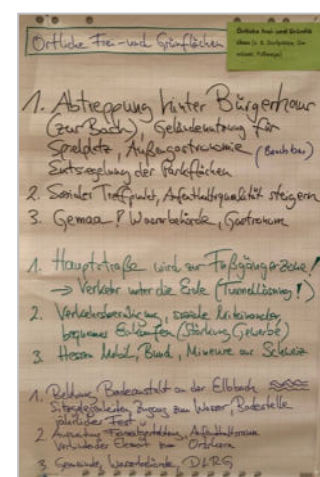 Örtliche Frei- und Grünflächen
Örtliche Frei- und Grünflä-
chen (z. B. Dorfplätze,
1. Abtreppung hinter Bürgerhaus
(zur Bach), Geländenutzung für
Spielplatz, Außengastronomie
Entsiegelung der Parkflächen
2. Sozialer Treffpunkt, Aufenthaltsqualität steigern
3. Gemaa? Wasserbehörde, Gastronom
1. Hauptstraße wird zur Fußgängerzone!
→ Verkehr unter die Erde (Tunnellösung!)
2. Verkehrsberuhigung, soziale Miteinander,
bequemes Einkaufen (Stärkung Gewerbe)
3. Hessen Mobil, Bund, Mineure aus Schweiz
1. Badeanstalt an der Elbbach
Sitzgelegenheiten, Zugang zum Wasser, Badestelle
jährliches Fest
2. Aufenthaltsraum
Verbindendes Element zum Ortskern
3. Gemeinde, Wasserbehörde, DLRG